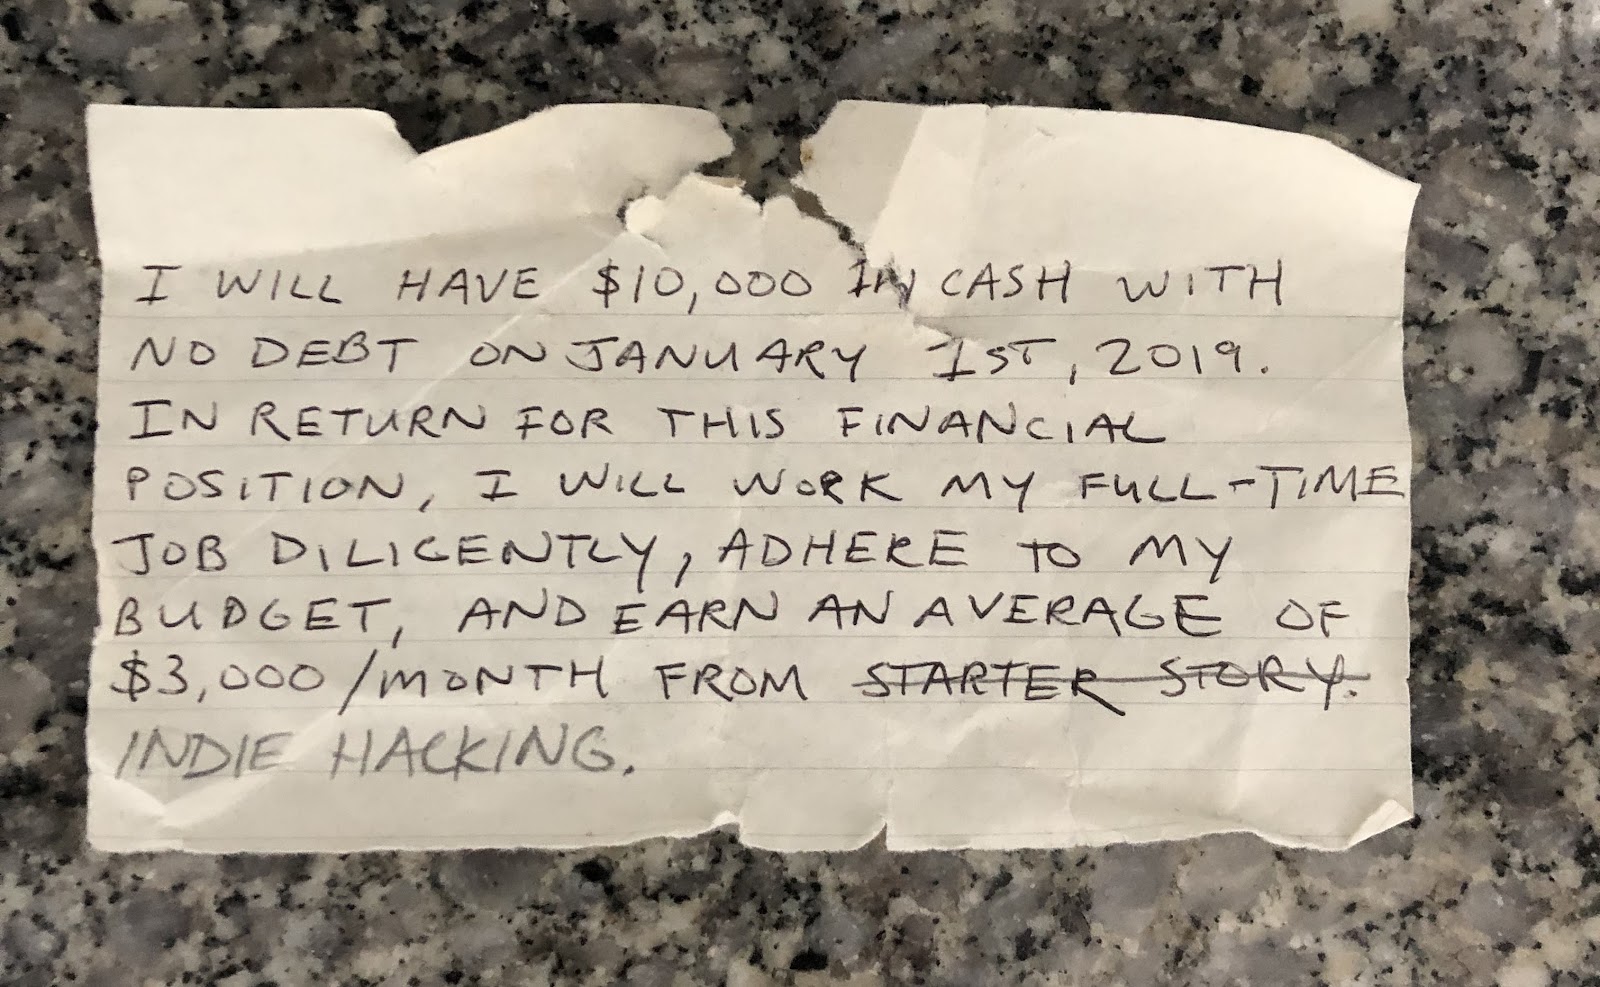 I WILL HAVE $10,000 IN CASH WITH
NO DEBT ON JANUARY 1ST, 2019.
IN RETURN FOR THIS FINANCIAL
POSITION, I WILL WORK MY FULL-TIME
JOB DILIGENTLY, ADHERE TO MY
BUDGET, AND EARN AN AVERAGE OF
$3,000/MONTH FROM STARTER STORY.
INDIE HACKING.